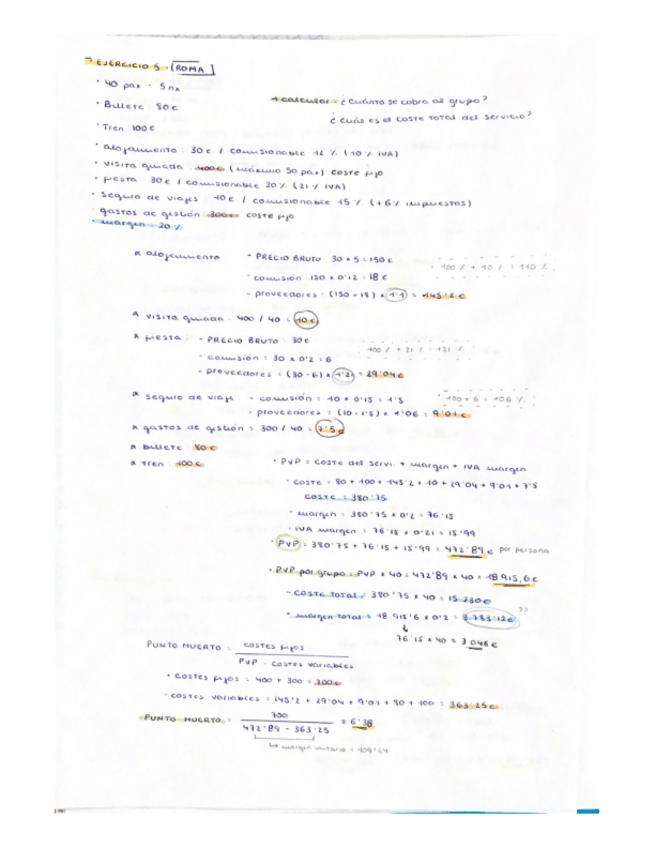 → EJERCICIO 5 - ROMA
• 40 pax - 5 nx
+ calcular - ¿ cuánto se cobra al grupo?
• Billete 80 €
¿ cuál es el coste total del servicio?
• Tren 100 €
• alojamiento : 30 € / comisionable 12 % (10 % IVA)
• visita guiada 400 € (máximo 50 pax) coste fijo
• fiesta 30 € / comisionable 20 % (21 % IVA)
• seguro de viajes 10 € / comisionable 15 % (+6 % impuestos)
• gastos de gestión 300 € coste fijo
• margen - 20 %
* alojamiento - PRECIO BRUTO 30 x 5 = 150 €
100 % + 10 % = 110 %
- comisión 150 x 0'12 = 18 €
- proveedores : (150 - 18) x 1'1 = 145'2 €
* visita guiada 400 / 40 = 10 €
* fiesta - PRECIO BRUTO 30 €
100 % + 21 % = 121 %
- comisión : 30 x 0'2 = 6
- proveedores = (30 - 6) x 1'21 = 29'04 €
* seguro de viaje - comisión = 10 x 0'15 = 1'5
100 + 6 = 106 %
- proveedores = (10 - 1'5) x 1'06 = 9'01 €
* gastos de gestión = 300 / 40 = 7'5 €
* billete 80 €
* tren 100 €
• PVP = coste del servi. + margen + IVA margen
• coste = 80 + 100 + 145'2 + 10 + 29'04 + 9'01 + 7'5
coste = 380'75
• margen = 380'75 x 0'2 = 76'15
• IVA margen = 76'15 x 0'21 = 15'99
• PVP = 380'75 + 76'15 + 15'99 = 472'89 € por persona
• PVP por grupo = PVP x 40 = 472'89 x 40 = 18 915,6 €
- coste total = 380'75 x 40 = 15.230 €
• margen total = 18 915'6 x 0'2 = 3.783'12 € ??
↓
76'15 x 40 = 3 046 €
PUNTO MUERTO = costes fijos
PVP - costes variables
• costes fijos = 400 + 300 = 700 €
• costes variables = 145'2 + 29'04 + 9'01 + 80 + 100 = 363'25 €
PUNTO MUERTO = 700 = 6'38
472'89 - 363'25
↳ margen unitario = 109'64